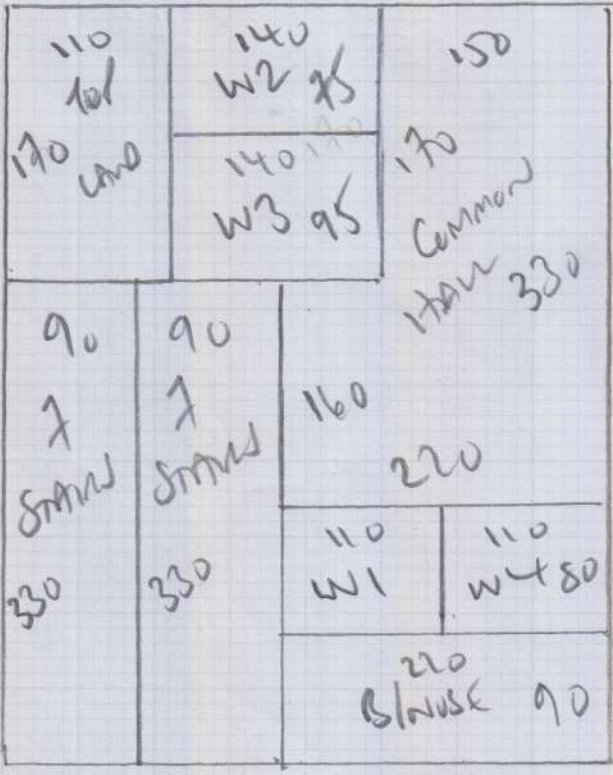 110
170
LAND
140
W2 75
140
W3 95
150
170
COMMON
HALL 330
90
7
STAIRS
330
90
7
STAIRS
330
160
220
110
W1
110
W4 80
220
90